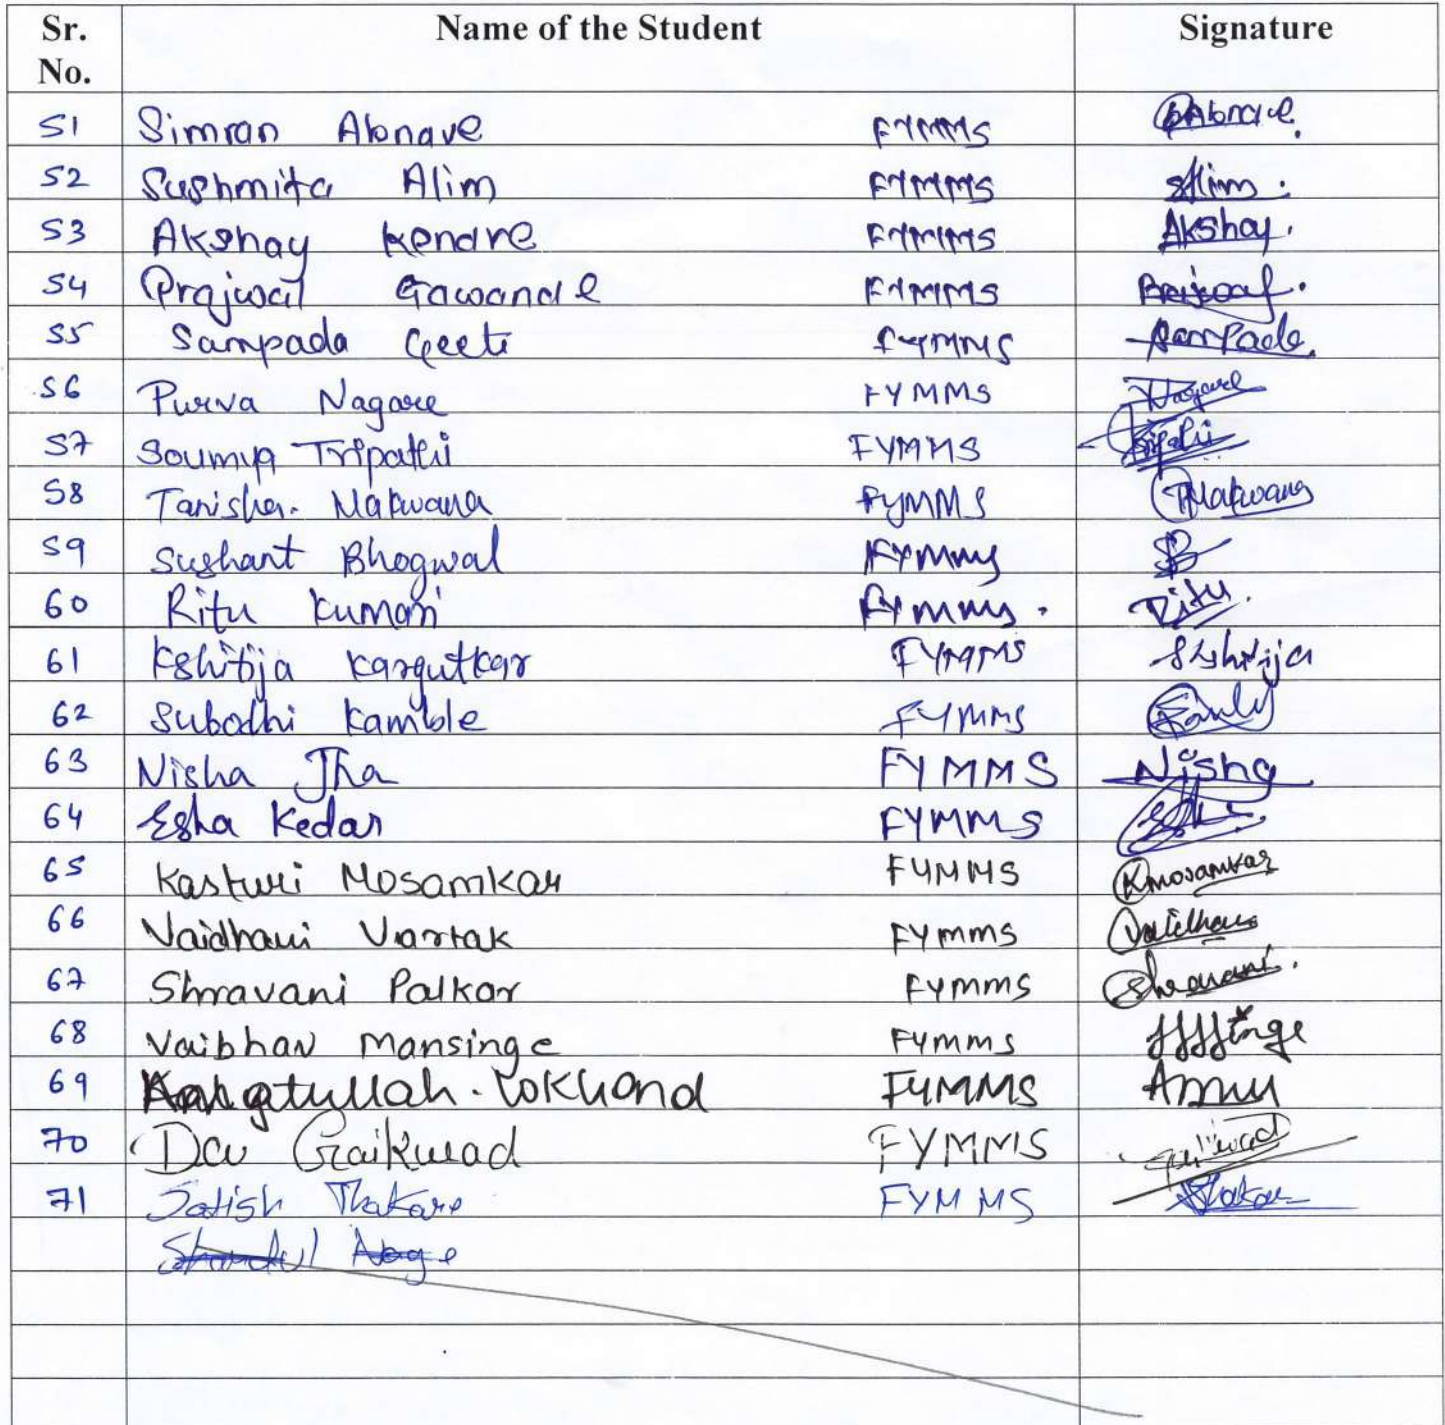 Sr. No. Name of the Student Signature
51 Simran Abnave FYMMS Abnave.
52 Sushmita Alim FYMMS Alim.
53 Akshay Kendre FYMMS Akshay.
54 Prajwal Gawande FYMMS
55 Sampada Geete FYMMS Sampada.
56 Purva Nagare FYMMS Nagare
57 Soumya Tripathi FYMMS Tripathi
58 Tanisha. Makwana FYMMS TMakwana
59 Sushant Bhogwal FYMMS SB
60 Ritu Kumari FYMMS. Ritu.
61 Kshitija Kargutkar FYMMS Kshitija
62 Subodhi Kamble FYMMS
63 Nisha Jha FYMMS Nisha
64 Esha Kedar FYMMS
65 Kasturi Mosamkar FYMMS Kmosamkar
66 Vaidhavi Vartak FYMMS
67 Shravani Palkar FYMMS Shravani.
68 Vaibhav Mansinge FYMMS
69 Lokhand FYMMS
70 Dev Gaikwad FYMMS Gaikwad
71 Satish Thakare FYMMS Thakare